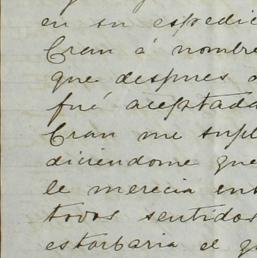 en su espedic
Cran á nombre
que despues a
fué aceptada
Cran me supl
diciendome que
le merecia en
todos sentidos
estorbaria el q